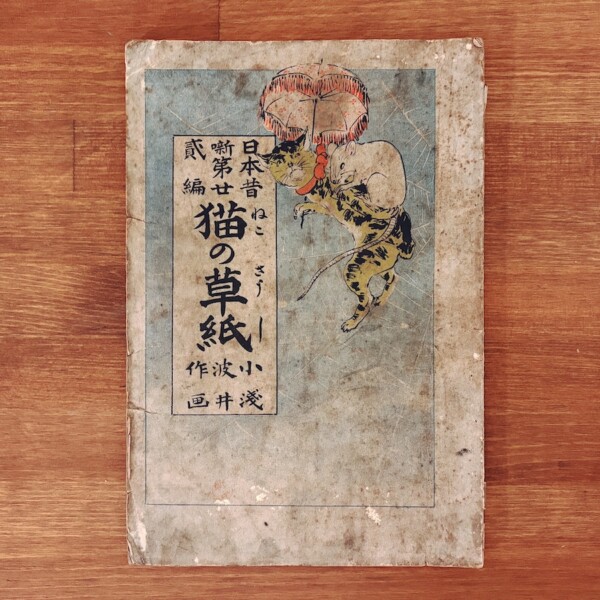 日本昔
噺第廿
貳編
ねこ さうし
猫の草紙
小波作
淺井画